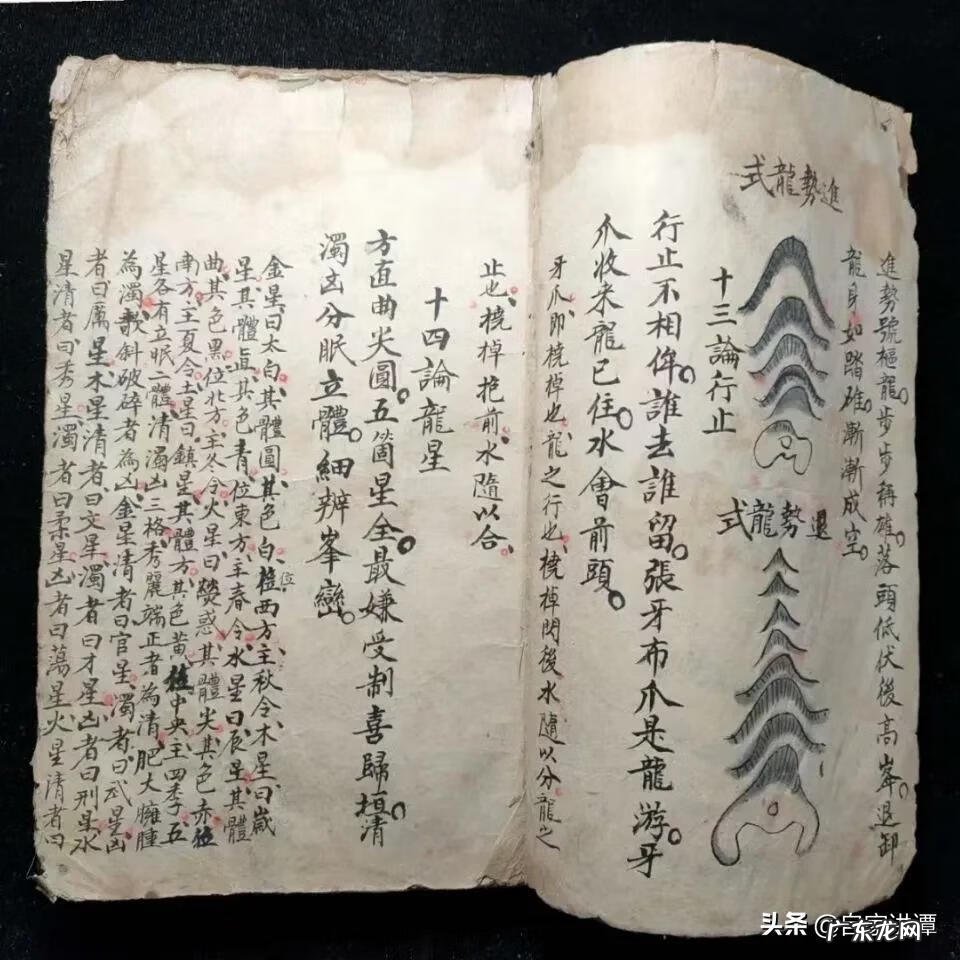 進勢龍式
進勢號樞龍。步步稱雄。落頭低伏後高峯。退卸
龍身如踏碓。漸漸成空。
退勢龍式
十三論行止
行止不相侔。誰去誰留。張牙布爪是龍游。牙
爪收来龍已住。水會前頭。
牙爪、即橈棹也、龍之行也、橈棹閃後、水隨以分、龍之
止也、橈棹抱前、水隨以合、
十四論龍星
方直曲尖圓。五箇星全。最嫌受制喜歸垣。清
濁凶分眠立體。細辨峯巒。
金星、曰太白、其體圓、其色白、位西方、主秋令、木星、曰歲
星、其體直、其色青、位東方、主春令、水星、曰辰星、其體
曲、其色黑、位北方、主冬令、火星、曰熒惑、其體尖、其色赤、位
南方、主夏令、土星、曰鎮星、其體方、其色黃、位中央、主四季、五
星各有立眠二體、清濁凶三格、秀麗端正者為清、肥大臃腫
為濁、欹斜破碎者為凶、金星清者曰官星、濁者曰武星、凶
者曰厲星、木星清者曰文星、濁者曰才星、凶者曰刑星、水
星清者曰秀星、濁者曰柔星、凶者曰蕩星、火星清者曰
头条
广东龙网